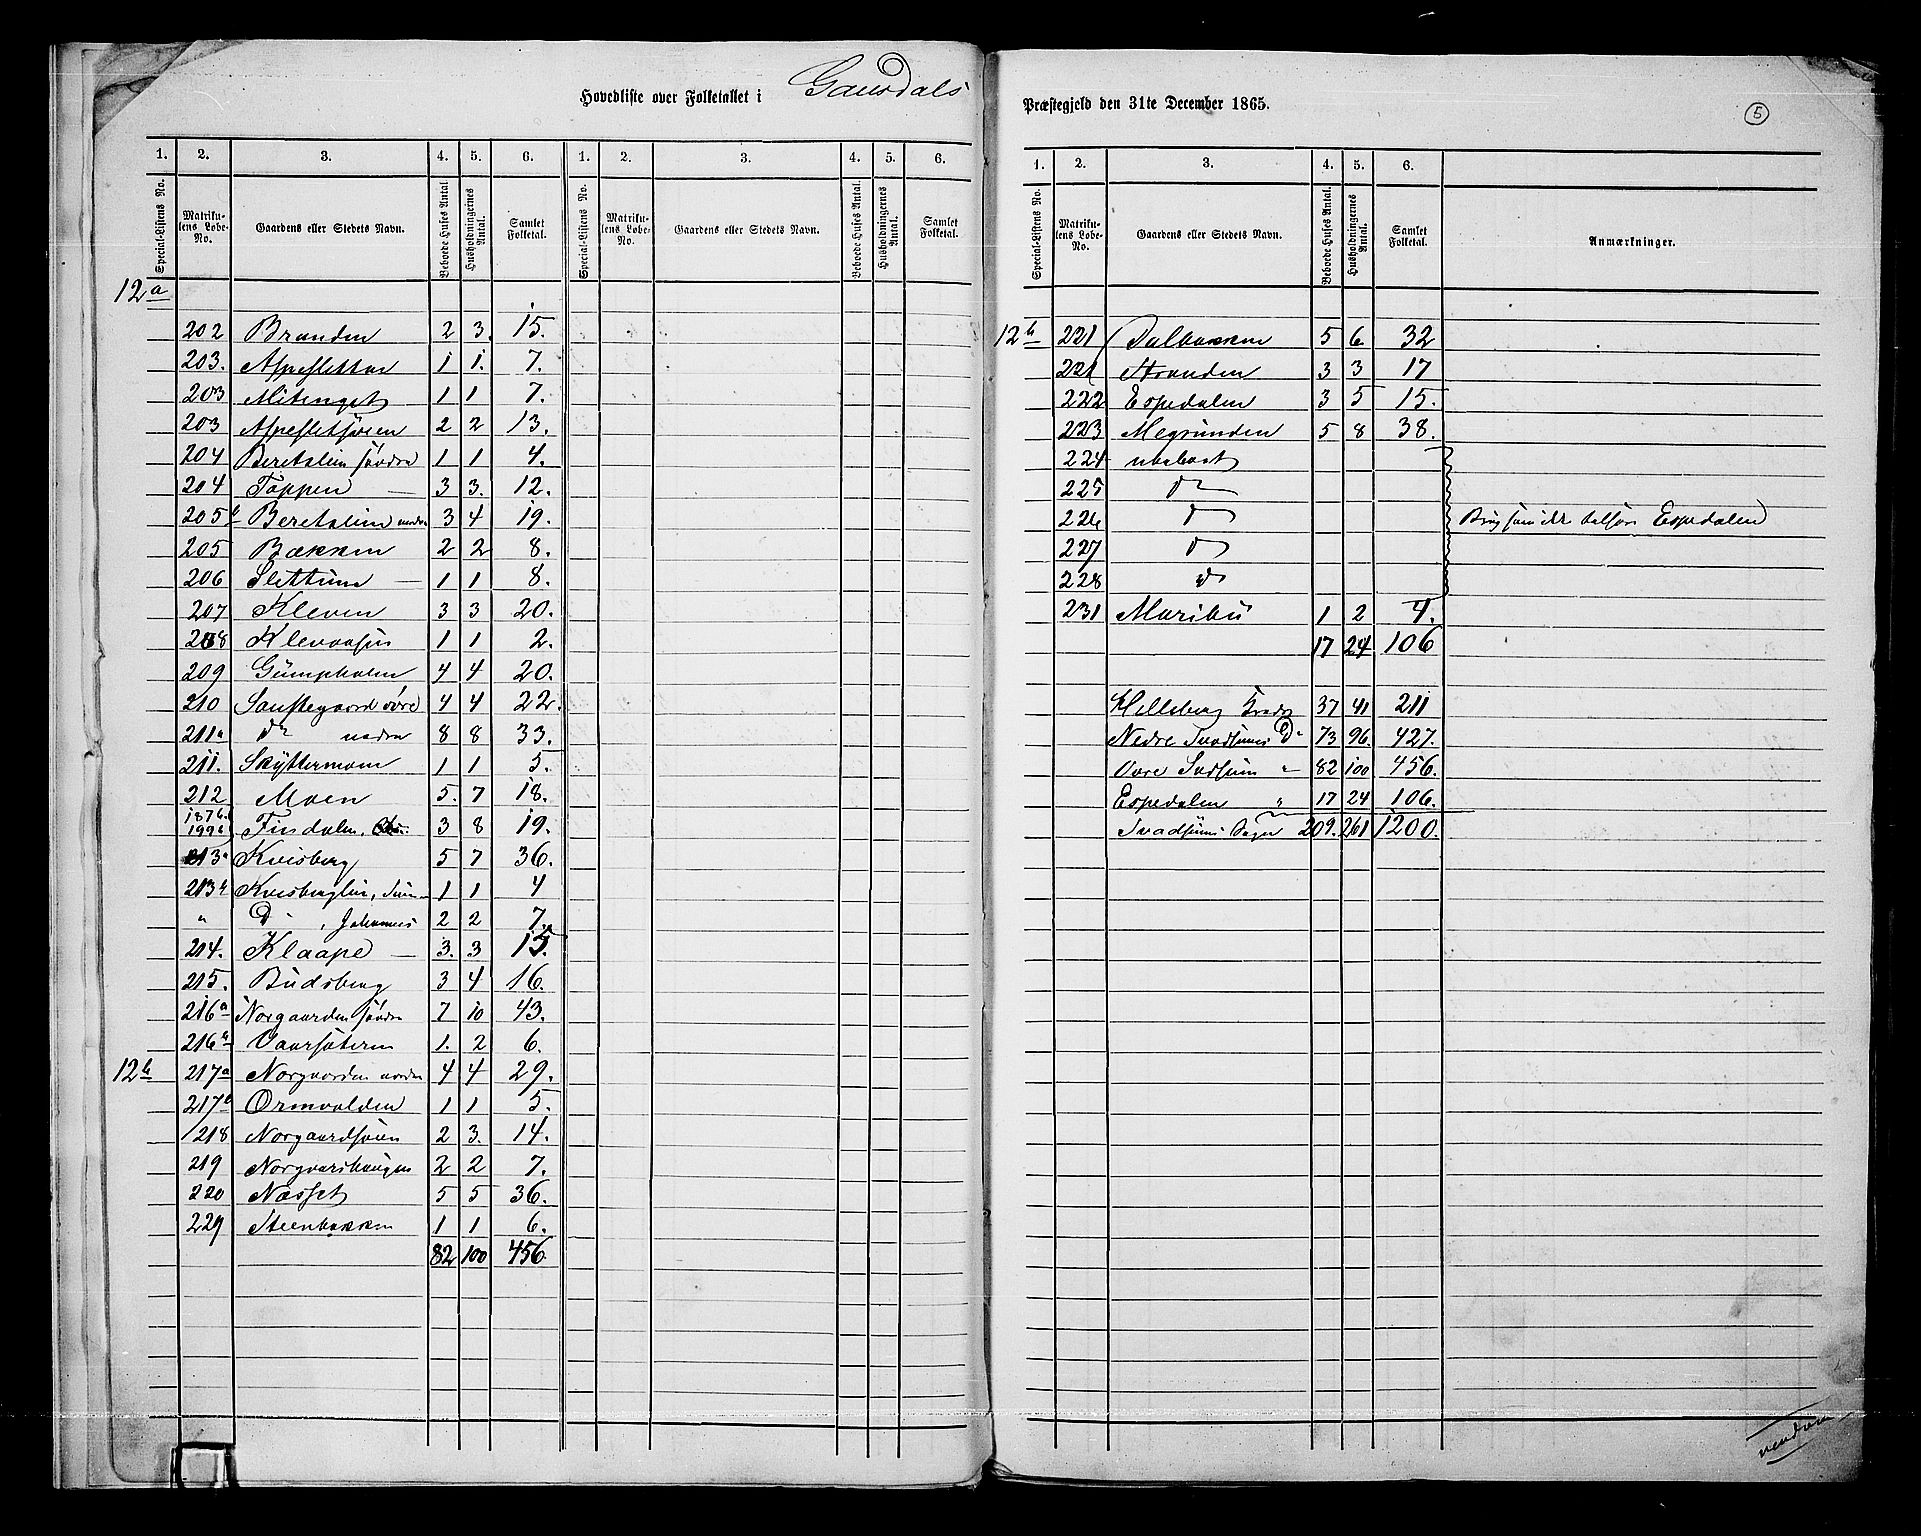 Hovedliste over Folketallet i Gausdals Præstegjeld den 31te December 1865.
5
1. 2. 3. 4. 5. 6. 1. 2. 3. 4. 5. 6.
Special-Listens No. Matrikulens Løbe-No. Gaardens eller Stedets Navn. Beboede Huses Antal. Husholdningernes Antal. Samlet Folketal. Special-Listens No. Matrikulens Løbe-No. Gaardens eller Stedets Navn. Beboede Huses Antal. Husholdningernes Antal. Samlet Folketal.
12a
202 Branden 2 3. 15.
203. Aspeslettan 1 1. 7.
203 Mitenget 1 1 7.
203 Aspesletsøien 2 2 13.
204 Bretalien søndre 1 1 4.
204 Toppen 3 3. 12.
205b Bretalien nordre 3 4 19.
205 Bækken 2 2 8.
206 Slettum 1 1 8.
207 Kleven 3 3 20.
208 Klevaasus 1 1 2.
209 Gumpholen 4 4 20.
210 Saustegaard øvre 4 4 22.
211a do nedre 8 8 33.
211. Skyttermoen 1 1 5.
212 Moen 5. 7 18.
187b. 199a Finsdalen, 3 8 19.
213a Kvisberg 5 7 36.
213b Kvisberglien, 1 1 4
" D , Johannes 2 2 7.
214. Klaape 3. 3 15.
215. Budsberg 3 4 16.
216a Norgaarden søndre 7 10 43.
216b Vaarsæteren 1. 2 6.
12b 217a Norgaarden nordre 4 4 29.
217b Ormvolden 1 1 5.
218 Norgaardsøien 2 3. 14.
219 Norgaardshaugen 2 2 7.
220 Næsset 5 5 36.
229 Steenbakken 1 1 6.
82 100 456
1. 2. 3. 4. 5. 6.
Special-Listens No. Matrikulens Løbe-No. Gaardens eller Stedets Navn. Beboede Huses Antal. Husholdningernes Antal. Samlet Folketal. Anmærkninger.
12b 221 Dalbakken 5 6 32
221 Stranden 3 3 17
222 Espedalen 3 5 15.
223 Megrunden 5 8 38.
224 ubeboet
225 do
226 d Brug som ikke Espedalen
227 d
228 d
231 Maribu 1 2 4.
17 24 106
Helleberg Kreds 37 41 211
Nedre Svadsums D 73 96. 427.
Øvre Svatsum " 82 100 456.
Espedalen " 17 24 106.
Svadsums Sogn 209. 261 1200.
vendom